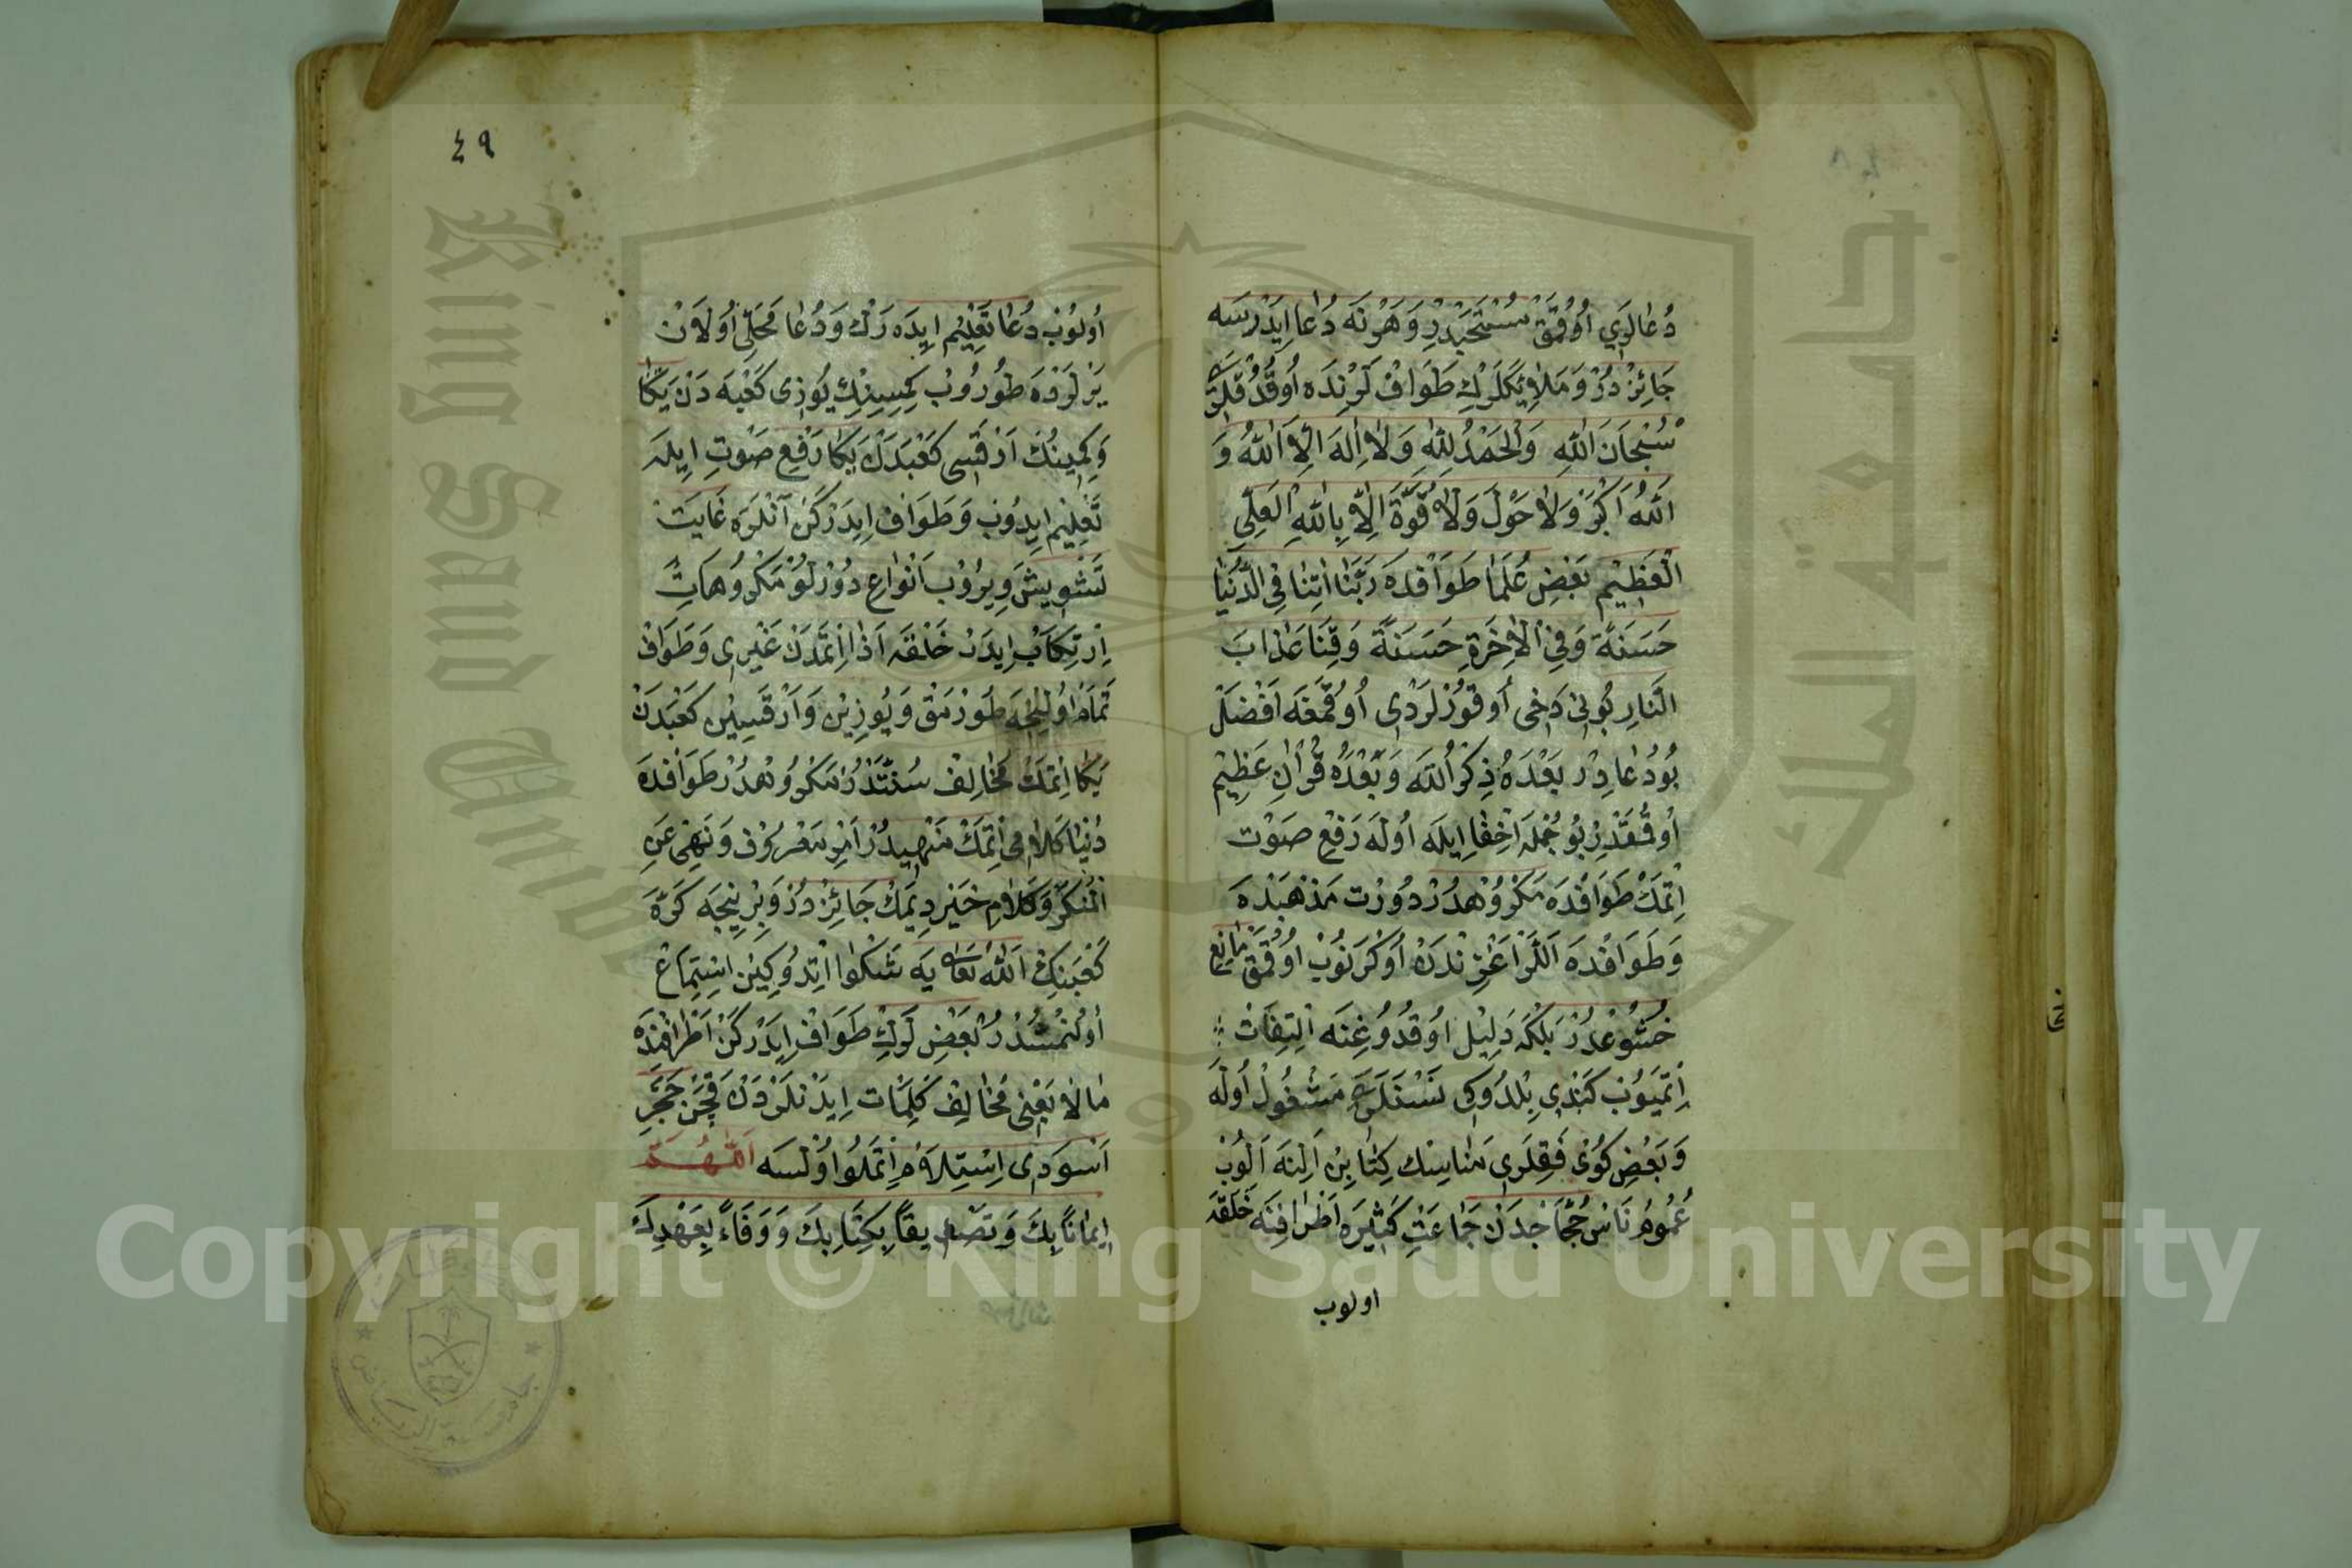 دُعَالَرِي اُوقُمَقْ مُسْتَحَبْدِرْ وَهَرْنَه دُعَا اِيدَرْسَه
جَائِزْدُرْ وَمَلَائِكَلَرِكْ طَوَافْ لَرِنْدَه اُوقُدُقْلَرِي
سُبْحَانَ اللّٰهِ وَالْحَمْدُ لِلّٰهِ وَلَا اِلٰهَ اِلَّا اللّٰهُ وَ
اَللّٰهُ اَكْبَرْ وَلَا حَوْلَ وَلَا قُوَّةَ اِلَّا بِاللّٰهِ الْعَلِيِّ
الْعَظِيْمِ بَعْضِ عُلَمَا طَوَافْدَه رَبَّنَا اٰتِنَا فِي الدُّنْيَا
حَسَنَةً وَفِي الْاٰخِرَةِ حَسَنَةً وَقِنَا عَذَابَ
النَّارِ بُونِي دَخِي اُوقُوزْلَرْدِي اُوقُمَغَه اَفْضَلْ
بُو دُعَادِرْ بَعْدَهُ ذِكْرُ اللّٰه وَبَعْدَهُ قُرْاٰنِ عَظِيْمْ
اُوقُمَقْدِرْ بُو جُمْلَه اِخْفَا اِيلَه اُولَه رَفْعِ صَوْتْ
اِتْمَكْ طَوَافْدَه مَكْرُوْهدُرْ دُورْت مَذْهَبْدَه
وَطَوَافْدَه اَللَّرْ اَغْزِنْدَنْ اُوكْرَنُوبْ اُوقُمَقْ مَانِعِ
خُشُوعْدُرْ بَلْكَه دَلِيْل اُوقُدُوغِنَه اِلْتِفَاتْ
اِتْمَيُوبْ كَنْدِي بِلْدُوكِي نَسْنَلَرَه مَشْغُولْ اُولَه
وَبَعْضِ كُوْي فَقِلَرِي مَنَاسِكْ كِتَابِنْ اَلِنَه اَلُوبْ
عُمُومُ نَاسْ حُجَّاجْدَنْ جَمَاعَتِ كَثِيْرَه اَطْرَافِنَه خَلْقَه
اولوب
٤٩
اُولُوبْ دُعَا تَعْلِيْم اِيدَه رَكْ وَدُعَا مَحَلِّى اُولَانْ
يَرْلَرْدَه طُورُوبْ كِمِيسِنِكْ يُوزِى كَعْبَه دَنْ يَكَا
وَكِمِينُكْ اَرْقَسِى كَعْبَدَنْ يَكَا رَفْعِ صَوْتِ اِيلَه
تَعْلِيْم اِيدُوبْ وَطَوَافْ اِيدَرْكَنْ اٰنْلَرَه غَايَتْ
تَشْوِيشْ وِيرُوبْ اَنْوَاعِ دُوْرْلُوْ مَكْرُوهَاتْ
اِرْتِكَابْ اِيدَرْ خَلْقَه اَذَا اِتْمَدَنْ غَيْرِى وَطَوَافْ
تَمَامْ اُولِنْجَه طُورْمَقْ وَيُوزِيْنْ وَاَرْقَسِيْنْ كَعْبَدَنْ
يَكَا اِتْمَكْ مُخَالِفْ سُنَّتْدُرْ مَكْرُوهْدُرْ طَوَافْدَه
دُنْيَا كَلَامِى اِتْمَكْ مَنْهِيدُرْ اَمْرِ مَعْرُوْف وَنَهْىِ عَنِ
الْمُنْكَرْ وَكَلَامِ خَيْر دِيمَكْ جَائِزْدُرْ وَبِرْنِيجَه كَرَّه
كَعْبَنِكْ اَللّٰه تَعَالٰى يَه شَكْوَا اِتْدُوكِينْ اِسْتِمَاعْ
اُولُنْمِشْدُرْ بَعْضِ لَرِكْ طَوَافْ اِيدَرْكَنْ اَطْرَافِنْدَه
مَالَا يَعْنِى مُخَالِفْ كَلِمَات اِيدَنْلَرْدَنْ قَچَنْ حَجَرِ
اَسْوَدِى اِسْتِلَامْ اِتْمَلُو اُولْسَه اَللّٰهُمَّ
اِيمَانًا بِكَ وَتَصْدِيقًا بِكِتَابِكَ وَوَفَاءً بِعَهْدِكَ
Copyright © King Saud University
King Saud University
جامعة الملك